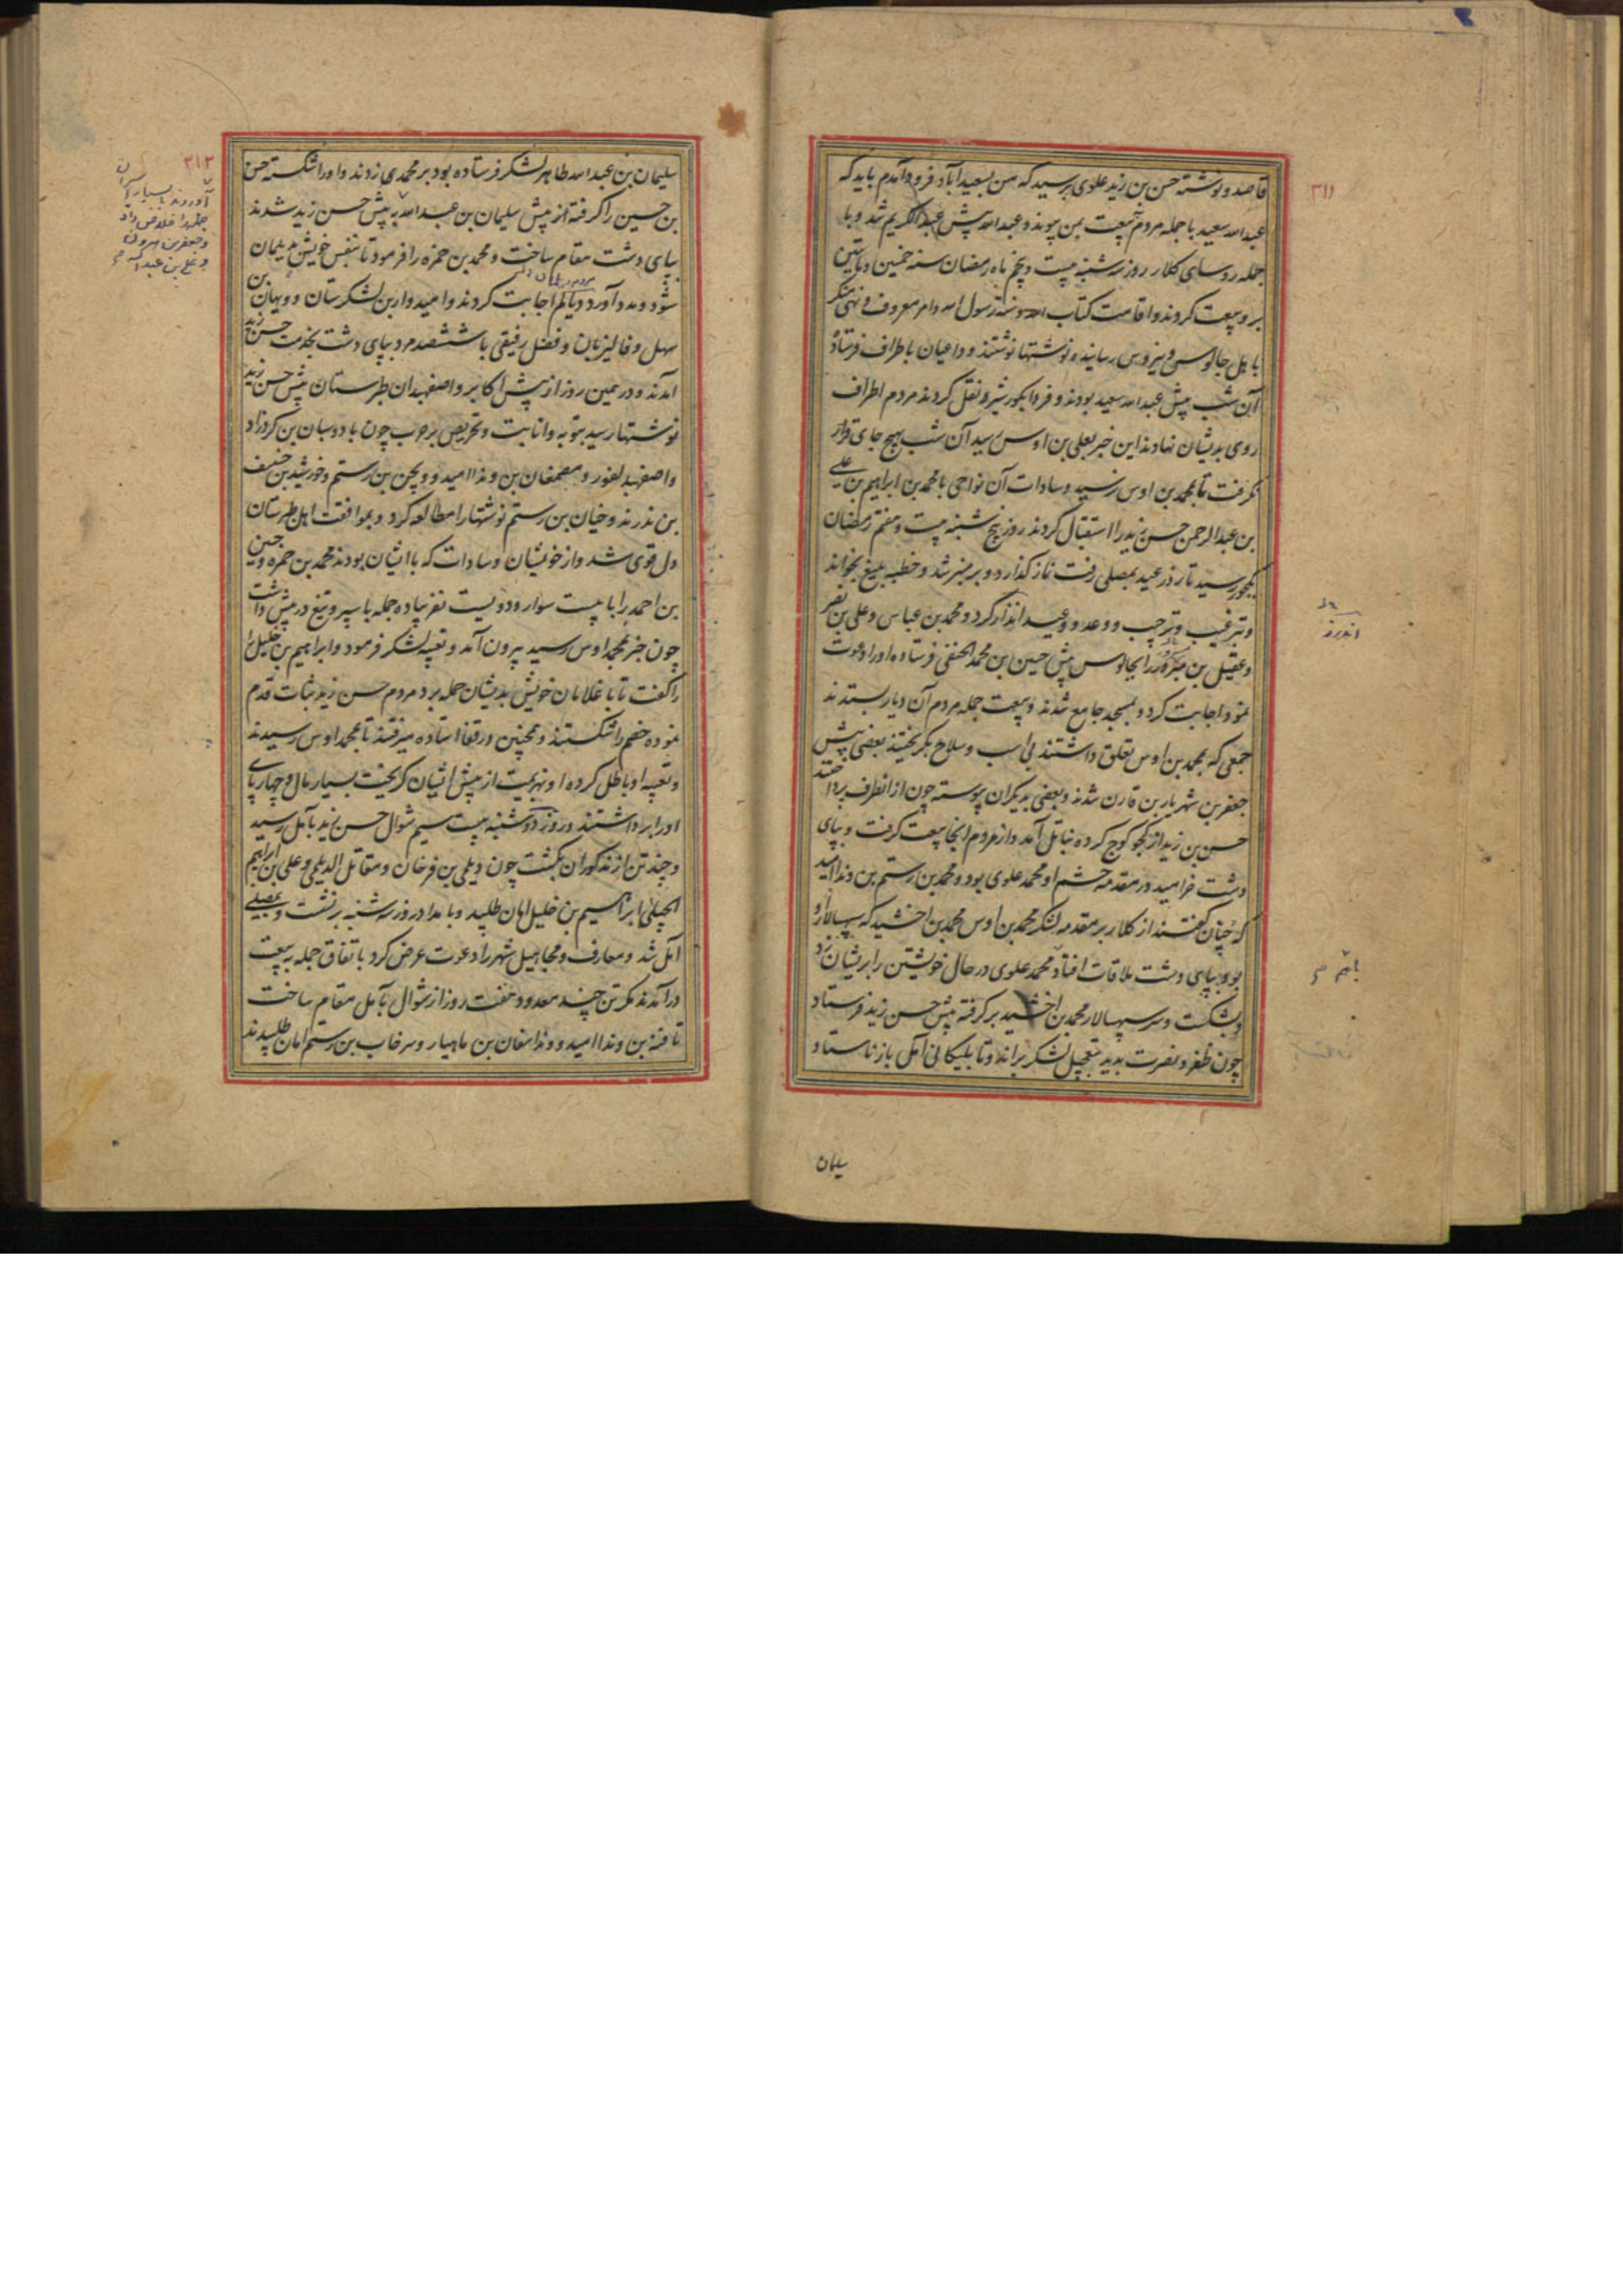 ۳۱۱
قاصد و نوشته حسن بن زید علوی برسید که من بسعیدآباد فرود آمدم باید که
عبدالله سعید با جمله مردم ببیعت بمن پیوند و عبدالله پیش عبدالکریم شد و با
جمله روسای کلار روز سه شنبه بیست و پنجم ماه رمضان سنه خمسین و مایتین
برو بیعت کردند و اقامت کتاب الله و سنة رسول الله و امر معروف و نهی منکر
باهل چالوس و نیروس رسانیده نوشتها نوشتند و داعیان باطراف فرستاد
آن شب پیش عبدالله سعید بودند و فردا بکورشیرد نقل کردند مردم اطراف
روی بدیشان نهادند این خبر بعلی بن اوس رسید آن شب بهیچ جای قرار
نگرفت تا بمحمد بن اوس رسید و سادات آن نواحی با محمد بن ابراهیم بن علی
بن عبدالرحمن حسن زید را استقبال کردند روز پنج شنبه بیست و هفتم رمضان
بکجور رسید تا روز عید بمصلی رفت نماز گذارد و بر منبر شد و خطبه بلیغ بخواند
و ترغیب و ترحیب و وعد و وعید انذار کرد و محمد بن عباس و علی بن نصر
و عقیل بن مبرور را بچالوس پیش حسین بن محمد الحنفی فرستاد و او را دعوت
نمود اجابت کرد و بمسجد جامع شدند و بیعت جمله مردم آن دیار بستدند
جمعی که بمحمد بن اوس تعلق داشتند بی اسب و سلاح بگریختند بعضی پیش
جعفر بن شهریار بن قارن شدند و بعضی بدیگران پیوسته چون از انطرف پرداختند
حسن بن زید از کجو کوچ کرده بناتل آمد و از مردم آنجا بیعت گرفت و بپای
دشت خرامید در مقدمه حشم او محمد علوی بود و محمد بن رستم بن ونداامید
که چنان گفتند از کلار بر مقدمه لشکر محمد بن اوس محمد بن اخشید که سپهسالار او
بود بپای دشت ملاقات افتاد محمد علوی در حال خویشتن را بریشان زد
و بشکست و سر سپهسالار محمد بن اخشید برگرفته پیش حسن زید فرستاد
چون ظفر و نصرت بدید بتعجیل لشکر براند و تا بلیکانی آمل باز نایستاد و
اندرز
سلیمان
۳۱۲
سلیمان بن عبدالله طاهر لشکر فرستاده بود بر محمدی زدند و او را شکسته حسن
بن حسین را گرفته از پیش سلیمان بن عبدالله به پیش حسن زید شدند
بپای دشت مقام ساخت و محمد بن حمزه را فرمود تا بنفس خویش بدیلمان
شود و مدد آورد دیالم اجابت کردند و امیدوار بن لشکرستان و ویهان بن
سهل و فالیزبان و فضل رفیقی با ششصد مرد بپای دشت بخدمت حسن زید
آمدند و در همین روز از پیش اکابر و اصفهبدان طبرستان پیش حسن زید
نوشتها رسید بتوبه و انابت و تحریص بر حرب چون بادوسبان بن گردزاد
و اصفهبد لفور و مصمغان بن ونداامید و ویجن بن رستم و خورشید بن خسف
بن ندرند و خیان بن رستم نوشتها را مطالعه کرد و بموافقت اهل طبرستان
دل قوی شد و از خویشان و سادات که با ایشان بودند محمد بن حمزه و حسین
بن احمد را با بیست سوار و دویست نفر پیاده جمله با سپر و تیغ در پیش داشت
چون خبر بمحمد اوس رسید بیرون آمد و تعبیه لشکر فرمود و ابراهیم بن خلیل را
گفت تا با غلامان خویش بدیشان حمله برد مردم حسن زید ثبات قدم
نموده خصم را شکستند و همچنین در قفا استاده میرفتند تا بمحمد اوس رسیدند
و تعبیه او باطل کرده او بهزیمت از پیش ایشان گریخت بسیار مال و چهارپای
او را برداشتند و روز دوشنبه بیست سیم شوال حسن زید بآمل رسید
و چند تن از مذکوران بکشت چون دیلمی بن فرخان و مقاتل الدیلمی و علی بن ابراهیم
الجبلی ابراهیم بن خلیل امان طلبید و بامداد روز سه شنبه برنشست و بمصلی
آمل شد و معارف و مجاهیل شهر را دعوت عرض کرد باتفاق جمله به بیعت
درآمدند مگر تن چند معدود و هفت روز از شوال بآمل مقام ساخت
تا فنه بن ونداامید و ونداسفان بن ماهیار و سرخاب بن رستم امان طلبیدند